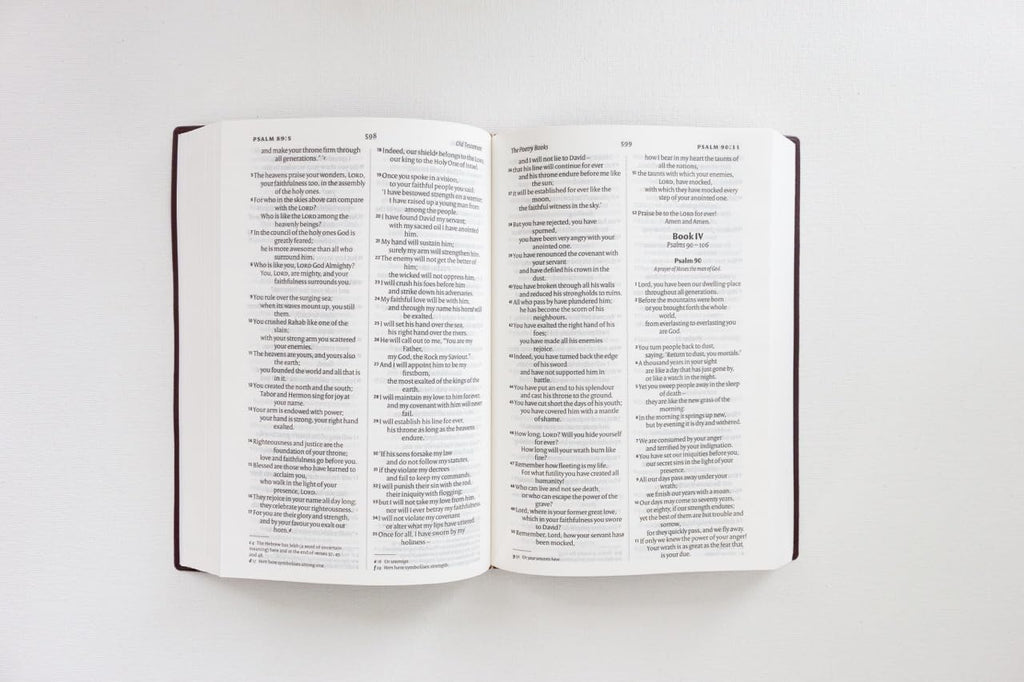 PSALM 89:5
598
Old Testament
and make your throne firm through
all generations.'"
5 The heavens praise your wonders, LORD,
your faithfulness too, in the assembly
of the holy ones.
6 For who in the skies above can compare
with the LORD?
Who is like the LORD among the
heavenly beings?
7 In the council of the holy ones God is
greatly feared;
he is more awesome than all who
surround him.
8 Who is like you, LORD God Almighty?
You, LORD, are mighty, and your
faithfulness surrounds you.
9 You rule over the surging sea;
when its waves mount up, you still
them.
10 You crushed Rahab like one of the
slain;
with your strong arm you scattered
your enemies.
11 The heavens are yours, and yours also
the earth;
you founded the world and all that is
in it.
12 You created the north and the south;
Tabor and Hermon sing for joy at
your name.
13 Your arm is endowed with power;
your hand is strong, your right hand
exalted.
14 Righteousness and justice are the
foundation of your throne;
love and faithfulness go before you.
15 Blessed are those who have learned to
acclaim you,
who walk in the light of your
presence, LORD.
16 They rejoice in your name all day long;
they celebrate your righteousness.
17 For you are their glory and strength,
and by your favour you exalt our
horn.
The Hebrew has Selah (a word of uncertain
meaning) here and at the end of verses 37, 45
and 48.
17 Horn here symbolises strong one.
18 Indeed, our shield belongs to the LORD,
our king to the Holy One of Israel.
19 Once you spoke in a vision,
to your faithful people you said:
'I have bestowed strength on a warrior;
I have raised up a young man from
among the people.
20 I have found David my servant;
with my sacred oil I have anointed
him.
21 My hand will sustain him;
surely my arm will strengthen him.
22 The enemy will not get the better of
him;
the wicked will not oppress him.
23 I will crush his foes before him
and strike down his adversaries.
24 My faithful love will be with him,
and through my name his horn will
be exalted.
25 I will set his hand over the sea,
his right hand over the rivers.
26 He will call out to me, "You are my
Father,
my God, the Rock my Saviour."
27 And I will appoint him to be my
firstborn,
the most exalted of the kings of the
earth.
28 I will maintain my love to him for ever,
and my covenant with him will never
fail.
29 I will establish his line for ever,
his throne as long as the heavens
endure.
30 'If his sons forsake my law
and do not follow my statutes,
31 if they violate my decrees
and fail to keep my commands,
32 I will punish their sin with the rod,
their iniquity with flogging;
33 but I will not take my love from him,
nor will I ever betray my faithfulness.
34 I will not violate my covenant
or alter what my lips have uttered.
35 Once for all, I have sworn by my
holiness –
18 Or sovereign
24 Horn here symbolises strength.
The Poetry Books
599
PSALM 90:11
and I will not lie to David –
36 that his line will continue for ever
and his throne endure before me like
the sun;
37 it will be established for ever like the
moon,
the faithful witness in the sky.'
38 But you have rejected, you have
spurned,
you have been very angry with your
anointed one.
39 You have renounced the covenant with
your servant
and have defiled his crown in the
dust.
40 You have broken through all his walls
and reduced his strongholds to ruins.
41 All who pass by have plundered him;
he has become the scorn of his
neighbours.
42 You have exalted the right hand of his
foes;
you have made all his enemies
rejoice.
43 Indeed, you have turned back the edge
of his sword
and have not supported him in
battle.
44 You have put an end to his splendour
and cast his throne to the ground.
45 You have cut short the days of his youth;
you have covered him with a mantle
of shame.
46 How long, LORD? Will you hide yourself
for ever?
How long will your wrath burn like
fire?
47 Remember how fleeting is my life.
For what futility you have created all
humanity!
48 Who can live and not see death,
or who can escape the power of the
grave?
49 Lord, where is your former great love,
which in your faithfulness you swore
to David?
50 Remember, Lord, how your servant has
been mocked,
how I bear in my heart the taunts of
all the nations,
51 the taunts with which your enemies,
LORD, have mocked,
with which they have mocked every
step of your anointed one.
52 Praise be to the LORD for ever!
Amen and Amen.
Book IV
Psalms 90 – 106
Psalm 90
A prayer of Moses the man of God.
1 Lord, you have been our dwelling-place
throughout all generations.
2 Before the mountains were born
or you brought forth the whole
world,
from everlasting to everlasting you
are God.
3 You turn people back to dust,
saying, 'Return to dust, you mortals.'
4 A thousand years in your sight
are like a day that has just gone by,
or like a watch in the night.
5 Yet you sweep people away in the sleep
of death –
they are like the new grass of the
morning:
6 in the morning it springs up new,
but by evening it is dry and withered.
7 We are consumed by your anger
and terrified by your indignation.
8 You have set our iniquities before you,
our secret sins in the light of your
presence.
9 All our days pass away under your
wrath;
we finish our years with a moan.
10 Our days may come to seventy years,
or eighty, if our strength endures;
yet the best of them are but trouble and
sorrow,
for they quickly pass, and we fly away.
11 If only we knew the power of your anger!
Your wrath is as great as the fear that
is your due.
50 Or your servants have